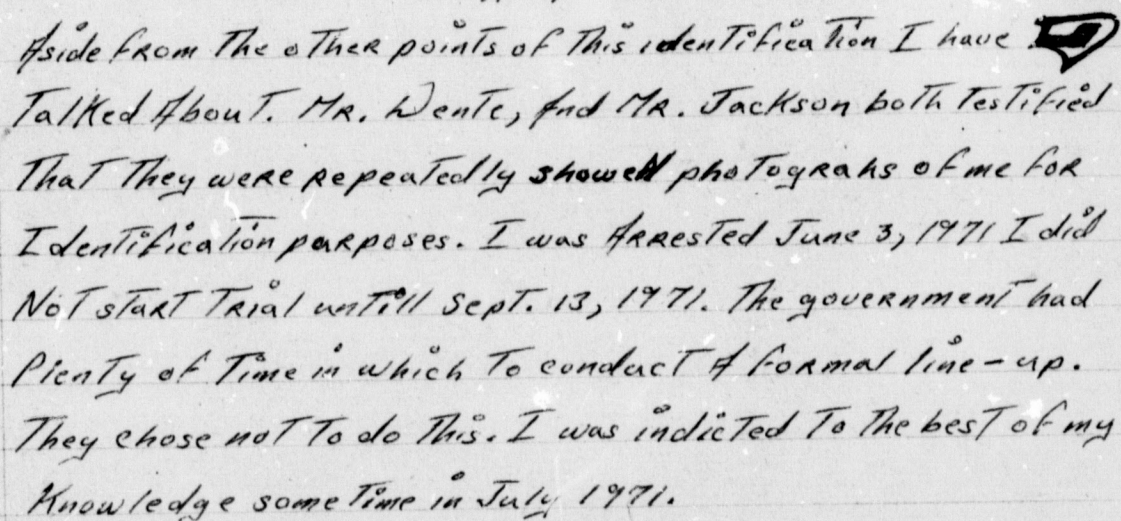 Aside from the other points of this identification I have
Talked About. Mr. Wente, And Mr. Jackson both testified
That they were repeatedly showed photograhs of me for
Identification purposes. I was Arrested June 3, 1971 I did
Not start Trial untill Sept. 13, 1971. The government had
Plenty of Time in which To conduct A formal line-up.
They chose not To do this. I was indicted To the best of my
Knowledge some Time in July 1971.